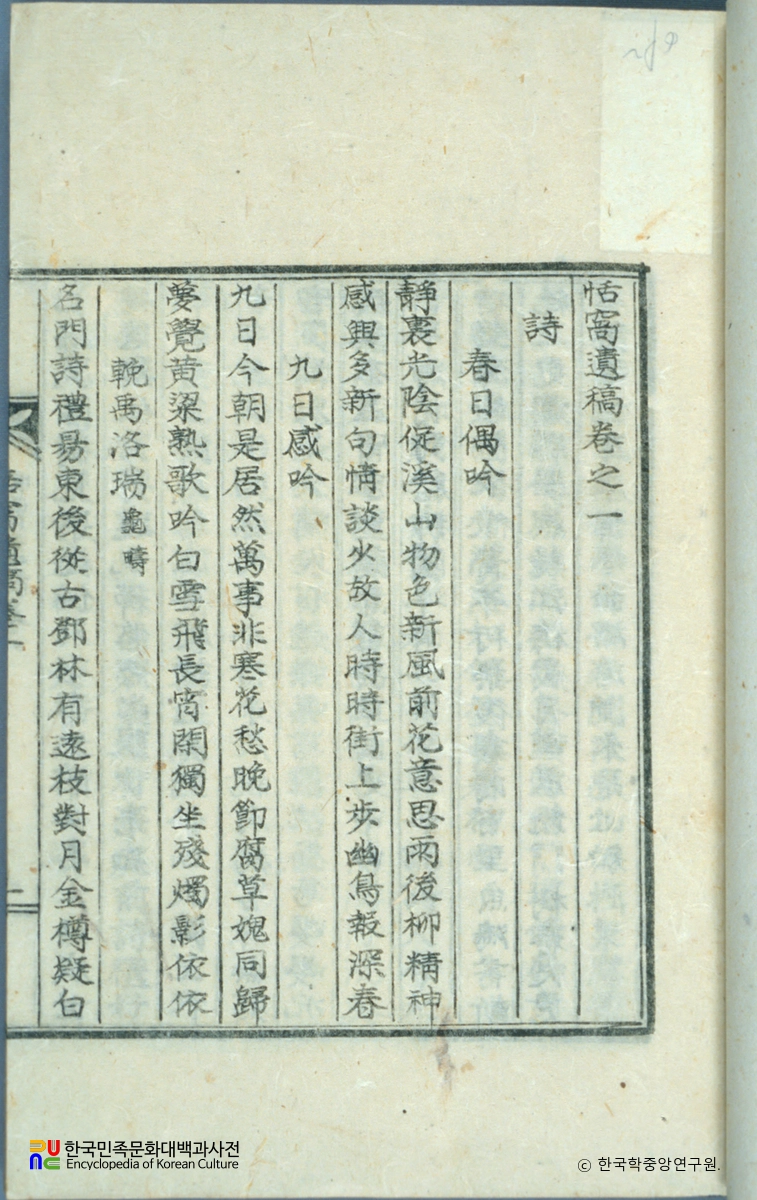 恬窩遺稿卷之一
詩
春日偶吟
靜裏光陰促溪山物色新風前花意思雨後柳精神
感興多新句情談少故人時時街上步幽鳥報深春
九日感吟
九日今朝是居然萬事非寒花愁晚節腐草媿同歸
夢覺黃粱熟歌吟白雪飛長宵閑獨坐殘燭影依依
輓禹洛瑞龜疇
名門詩禮易東後從古鄧林有遠枝對月金樽疑白
恬窩遺稿卷一
一
한국민족문화대백과사전
Encyclopedia of Korean Culture
© 한국학중앙연구원.